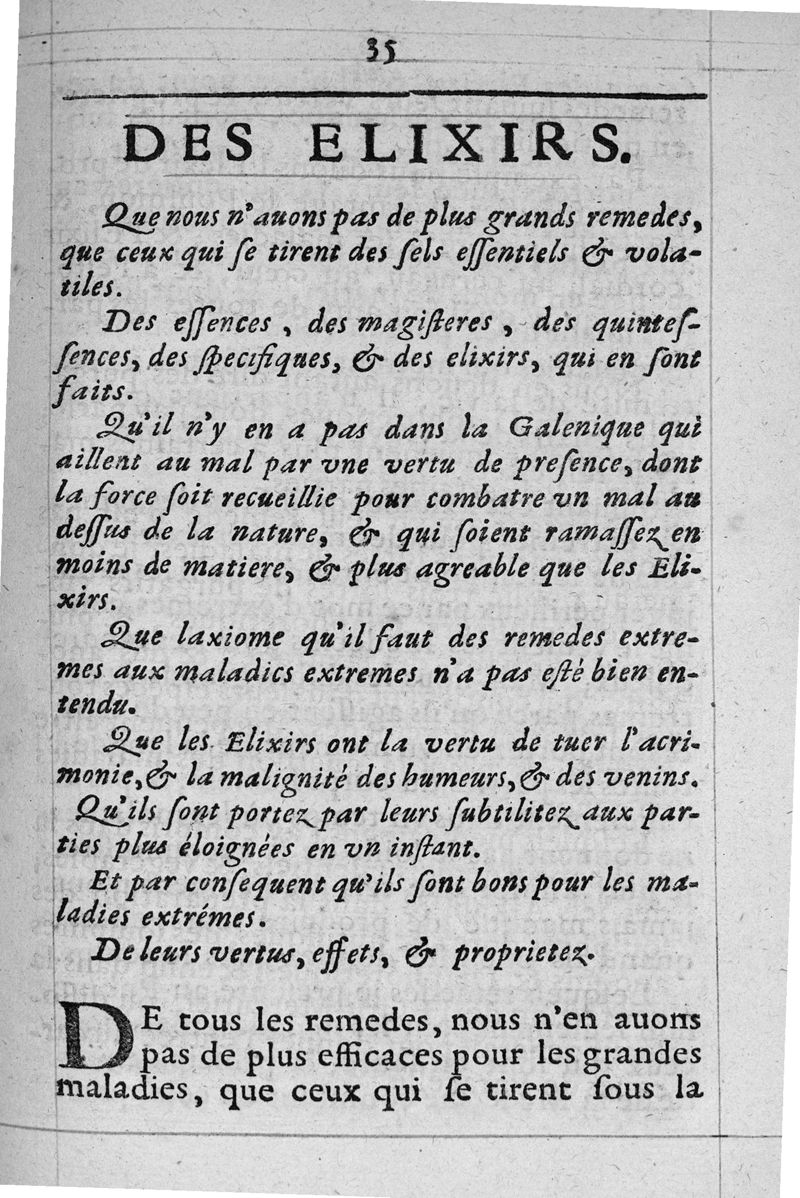 35
DES ELIXIRS.
Que nous n'auons pas de plus grands remedes,
que ceux qui ſe tirent des ſels eſſentiels & vola-
tiles.
Des eſſences, des magiſteres, des quinteſ-
ſences, des ſpecifiques, & des elixirs, qui en ſont
faits.
Qu'il n'y en a pas dans la Galenique qui
aillent au mal par vne vertu de preſence, dont
la force ſoit recueillie pour combatre vn mal au
deſſus de la nature, & qui ſoient ramaſſez en
moins de matiere, & plus agreable que les Eli-
xirs.
Que laxiome qu'il faut des remedes extre-
mes aux maladies extremes n'a pas eſté bien en-
tendu.
Que les Elixirs ont la vertu de tuer l'acri-
monie, & la malignité des humeurs, & des venins.
Qu'ils ſont portez par leurs ſubtilitez aux par-
ties plus éloignées en vn inſtant.
Et par conſequent qu'ils ſont bons pour les ma-
ladies extrémes.
De leurs vertus, effets, & proprietez.
DE tous les remedes, nous n'en auons
pas de plus efficaces pour les grandes
maladies, que ceux qui ſe tirent ſous la